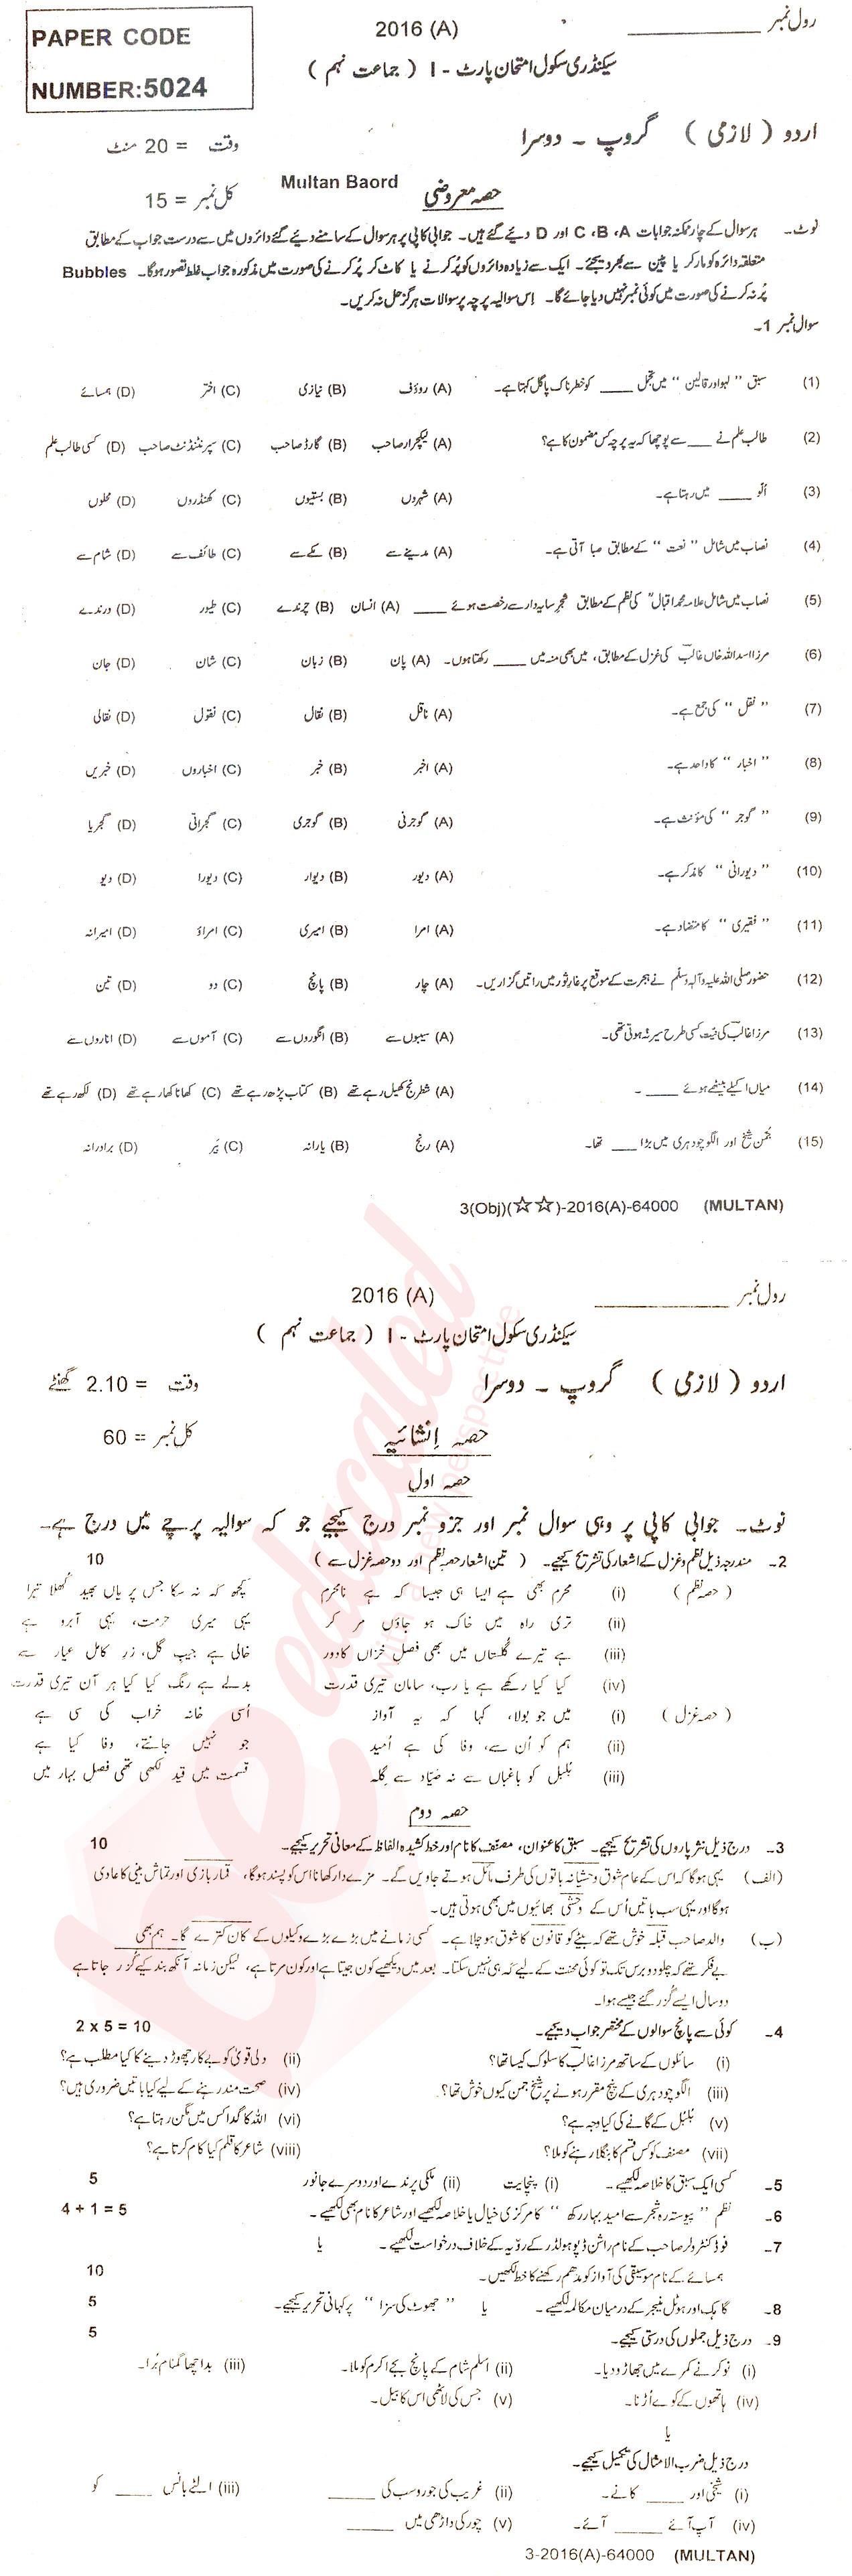 PAPER CODE
NUMBER:5024
2016 (A)
رول نمبر
سیکنڈری سکول امتحان پارٹ - I ( جماعت نہم )
اردو ( لازمی ) گروپ - دوسرا
وقت = 20 منٹ
Multan Baord
حصہ معروضی
کل نمبر = 15
نوٹ۔ ہر سوال کے چار ممکنہ جوابات A، B، C اور D دیئے گئے ہیں۔ جوابی کاپی پر ہر سوال کے سامنے دیئے گئے دائروں میں سے درست جواب کے مطابق
متعلقہ دائرہ کو مارکر یا پین سے بھر دیجئے۔ ایک سے زیادہ دائروں کو پُر کرنے یا کاٹ کر پُر کرنے کی صورت میں مذکورہ جواب غلط تصور ہوگا۔ Bubbles
پُر نہ کرنے کی صورت میں کوئی نمبر نہیں دیا جائے گا۔ اِس سوالیہ پرچہ پر سوالات ہرگز حل نہ کریں۔
سوال نمبر 1۔
(1) سبق " لہو اور قالین " میں تجمل ____ کو خطرناک پاگل کہتا ہے۔ (A) رووٴف (B) نیازی (C) اختر (D) ہمسائے
(2) طالب علم نے ____ سے پوچھا کہ یہ پرچہ کس مضمون کا ہے؟ (A) لیکچرار صاحب (B) گارڈ صاحب (C) سپرنٹنڈنٹ صاحب (D) کسی طالب علم
(3) اُلّو ____ میں رہتا ہے۔ (A) شہروں (B) بستیوں (C) کھنڈروں (D) محلوں
(4) نصاب میں شامل " نعت " کے مطابق صبا آتی ہے۔ (A) مدینے سے (B) مکے سے (C) طائف سے (D) شام سے
(5) نصاب میں شامل علامہ محمد اقبالؒ کی نظم کے مطابق شجرِ سایہ دار سے رخصت ہوئے ____ (A) انسان (B) چرندے (C) طیور (D) درندے
(6) مرزا اسد اللہ خاں غالب کی غزل کے مطابق، میں بھی منہ میں ____ رکھتا ہوں۔ (A) پان (B) زبان (C) شان (D) جان
(7) " نقل " کی جمع ہے۔ (A) ناقل (B) نقال (C) نقول (D) نقالی
(8) " اخبار " کا واحد ہے۔ (A) اخبر (B) خبر (C) اخباروں (D) خبریں
(9) " گوجر " کی مؤنث ہے۔ (A) گوجرنی (B) گوجری (C) گجراتی (D) گجریا
(10) " دیورانی " کا مذکر ہے۔ (A) دیور (B) دیوار (C) دیورا (D) دیو
(11) " فقیری " کا متضاد ہے۔ (A) امرا (B) امیری (C) امراؤ (D) امیرانہ
(12) حضور صلی اللہ علیہ وآلہ وسلم نے ہجرت کے موقع پر غارِ ثور میں راتیں گزاریں۔ (A) چار (B) پانچ (C) دو (D) تین
(13) مرزا غالب کی نیت کسی طرح سیر نہ ہوتی تھی۔ (A) سیبوں سے (B) انگوروں سے (C) آموں سے (D) اناروں سے
(14) میاں اکیلے بیٹھے ہوئے ____ ۔ (A) شطرنج کھیل رہے تھے (B) کتاب پڑھ رہے تھے (C) کھانا کھا رہے تھے (D) لکھ رہے تھے
(15) جمن شیخ اور الگو چودہری میں بڑا ____ تھا۔ (A) رنج (B) یارانہ (C) بَیر (D) برادرانہ
3(Obj)(☆☆)-2016(A)-64000 (MULTAN)
2016 (A)
رول نمبر
سیکنڈری سکول امتحان پارٹ - I ( جماعت نہم )
اردو ( لازمی ) گروپ - دوسرا
وقت = 2.10 گھنٹے
حصہ اِنشائیہ
کل نمبر = 60
حصہ اول
نوٹ۔ جوابی کاپی پر وہی سوال نمبر اور جزو نمبر درج کیجیے جو کہ سوالیہ پرچے میں درج ہے۔
2۔ مندرجہ ذیل نظم و غزل کے اشعار کی تشریح کیجیے۔ ( تین اشعار حصہ نظم اور دو حصہ غزل سے ) 10
( حصہ نظم ) (i) محرم بھی ہے ایسا ہی جیسا کہ ہے نامحرم کچھ کہ نہ سکا جس پر یاں بھید کُھلا تیرا
(ii) تری راہ میں خاک ہو جاؤں مر کر یہی میری حرمت، یہی آبرو ہے
(iii) ہے تیرے گلستاں میں بھی فصلِ خزاں کا دور خالی ہے جیبِ گل، زرِ کامل عیار سے
(iv) کیا کیا رکھے ہے یا رب، سامان تیری قدرت بدلے ہے رنگ کیا کیا ہر آن تیری قدرت
( حصہ غزل ) (i) میں جو بولا، کہا کہ یہ آواز اُسی خانہ خراب کی سی ہے
(ii) ہم کو اُن سے، وفا کی ہے اُمید جو نہیں جانتے، وفا کیا ہے
(iii) بُلبل کو باغباں سے نہ صیّاد سے گلہ قسمت میں قید لکھی تھی فصلِ بہار میں
حصہ دوم
3۔ درج ذیل نثر پاروں کی تشریح کیجیے۔ سبق کا عنوان، مصنف کا نام اور خط کشیدہ الفاظ کے معانی تحریر کیجیے۔ 10
(الف) یہی ہوگا کہ اس کے عام شوق وحشیانہ باتوں کی طرف مائل ہوتے جاویں گے۔ مزے دار کھانا اس کو پسند ہوگا، قمار بازی اور تماش بینی کا عادی
ہوگا اور یہی سب باتیں اُس کے وحشی بھائیوں میں بھی ہوتی ہیں۔
(ب) والد صاحب قبلہ خوش تھے کہ بیٹے کو قانون کا شوق ہو چلا ہے۔ کسی زمانے میں بڑے بڑے وکیلوں کے کان کترے گا۔ ہم بھی
بے فکر تھے کہ چلو دو برس تک تو کوئی محنت کے لیے کہ ہی نہیں سکتا۔ بعد میں دیکھیے کون جیتا ہے اور کون مرتا ہے، لیکن زمانہ آنکھ بند کیے گُزر جاتا ہے
دو سال ایسے گُزر گئے جیسے ہوا۔
4۔ کوئی سے پانچ سوالوں کے مختصر جواب دیجیے۔ 2 x 5 = 10
(i) سائلوں کے ساتھ مرزا غالب کا سلوک کیسا تھا؟ (ii) دلی قویٰ کو بے کار چھوڑ دینے کا کیا مطلب ہے؟
(iii) الگو چودہری کے پنچ مقرر ہونے پر شیخ جمن کیوں خوش تھا؟ (iv) صحت مند رہنے کے لیے کیا باتیں ضروری ہیں؟
(v) بُلبُل کے گانے کی کیا وجہ ہے؟ (vi) اللہ کا گدا کس میں مگن رہتا ہے؟
(vii) مصنف کو کس قسم کا بنگلا رہنے کو ملا؟ (viii) شاعر کا قلم کیا کام کرتا ہے؟
5۔ کسی ایک سبق کا خلاصہ لکھیے۔ (i) پنچایت (ii) ملکی پرندے اور دوسرے جانور 5
6۔ نظم " پیوستہ رہ شجر سے امیدِ بہار رکھ " کا مرکزی خیال یا خلاصہ لکھیے اور شاعر کا نام بھی لکھیے۔ 4 + 1 = 5
7۔ فوڈ کنٹرولر صاحب کے نام راشن ڈپو ہولڈر کے رویّہ کے خلاف درخواست لکھیے۔ یا
ہمسائے کے نام موسیقی کی آواز کو مدھم رکھنے کا خط لکھیں۔ 10
8۔ گاہک اور ہوٹل منیجر کے درمیان مکالمہ لکھیے۔ یا " جھوٹ کی سزا " پر کہانی تحریر کیجیے۔ 5
9۔ درج ذیل جملوں کی درستی کیجیے۔ 5
(i) نوکر نے کمرے میں جھاڑو دیا۔ (ii) اسلم شام کے پانچ بجے اکرم کو ملا۔ (iii) بد اچھا گمنام بُرا۔
(iv) ہاتھوں کے کوے اُڑنا۔ (v) جس کی لاٹھی اس کا بیل۔
یا
درج ذیل ضرب الامثال کی تکمیل کیجیے۔
(i) شیخی اور ____ کانے۔ (ii) غریب کی جورو سب کی ____ (iii) الٹے بانس ____ کو
(iv) آپ آئے ____ آئے۔ (v) چور کی داڑھی میں ____
3-2016(A)-64000 (MULTAN)